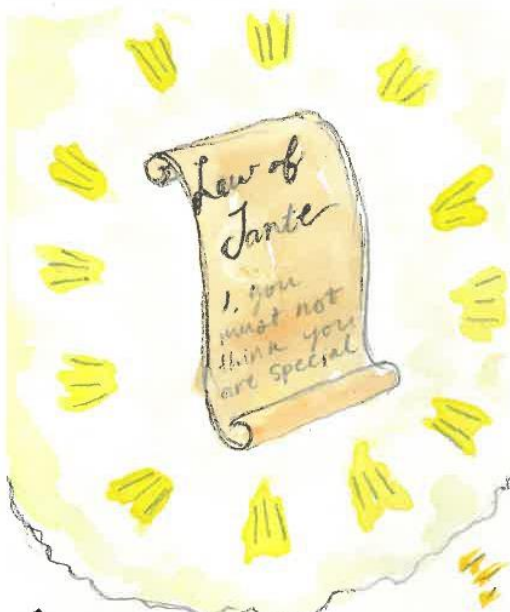 Law of
Jante
1. you
must not
think you
are special